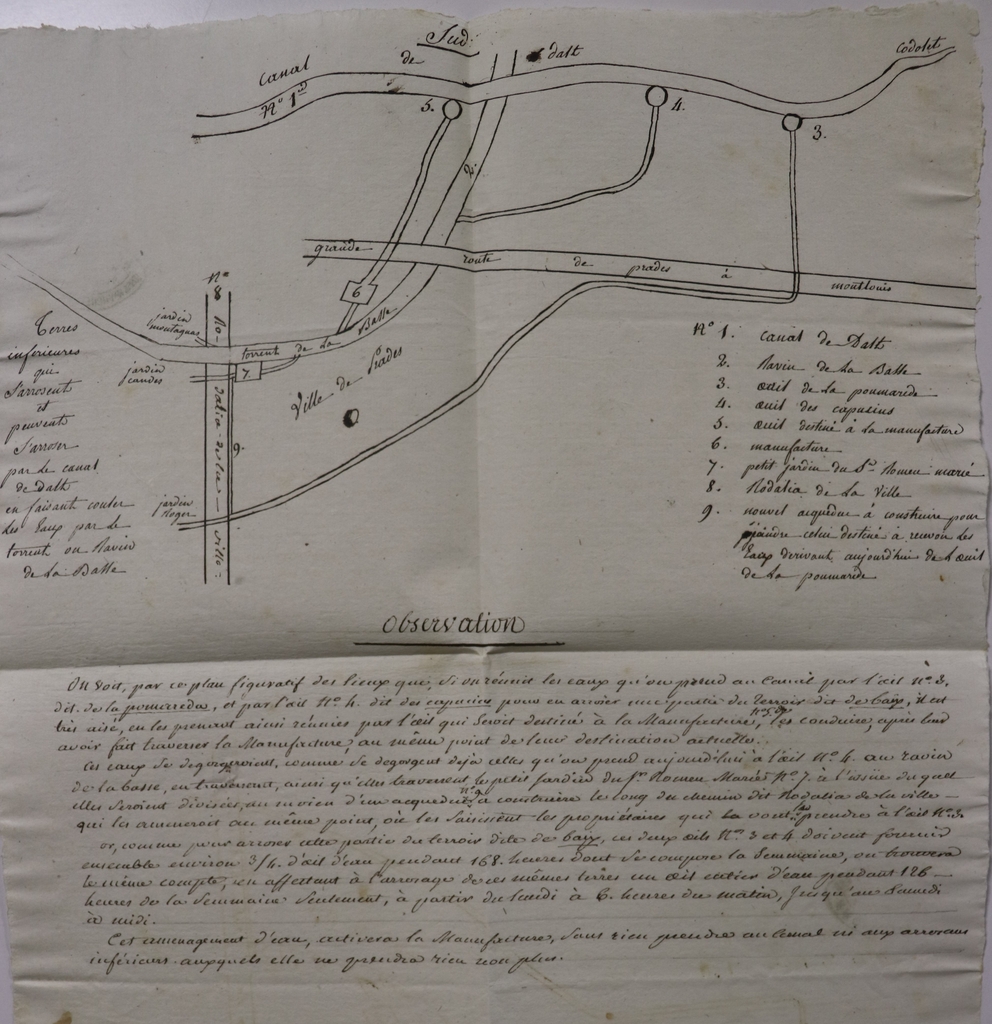 Sud
Canal de dalt
Codolet
N.o 1.er
5.
4.
3.
2.
grande route de prades à montlouis
6
N.o
8 Ro-
dalia de la ville
jardin
montagnas
torrent de la Basse
jardin
7.
Ville de Prades
9.
jardin
Roger
Terres
inferieures
qui
s'arrosent
et
peuvent
s'arroser
par le canal
de Dalt
en faisant couler
les Eaux par le
torrent ou Ravin
de la Basse
N.o 1. canal de Dalt
2. Ravin de la Basse
3. œuil de la poumarède
4. œuil des capucins
5. œuil destiné à la manufacture
6. manufacture
7. petit jardin du S.r Romeu marié
8. Rodalia de la Ville
9. nouvel acqueduc à construire pour
joindre celui destiné a recevoir les
Eaux derivant aujourd'hui de l'œuil
de la poumarède
Observation
On voit, par ce plan figuratif des lieux que, si on réunit les eaux qu'on prend au Canal par l'œil N.o 3.
dit de la pomarreda, et par l'œil N.o 4. dit des capucins pour en arroser une partie du terroir dit de baix, il est
très aisé, en les prenant ainsi réunies par l'œil qui seroit destiné à la Manufacture, N.o 5. les conduire, après leur
avoir fait traverser la Manufacture, au même point de leur destination actuelle.
Ces eaux se dégorgeroient, comme se dégorgent déjà celles qu'on prend aujourd'hui à l'œil N.o 4. au ravin
de la basse, en traversant, ainsi qu'elles traversent le petit jardin du S.r Romeu Mariés N.o 7. à l'issüe duquel
elles seroient divisées, au moyen d'un acqueduc n.o 9 à construire le long du chemin dit Rodalia de la ville
qui les ameneroit au même point, où les saisissent les propriétaires qui la vont prendre à l'œil N.o 3.
or, comme pour arroser cette partie du terroir dite de baix, ces deux œils N.o 3 et 4 doivent fournir
ensemble environ 3/4. d'œil d'eau pendant 168. heures dont se compose la Semmaine, on trouvera
le même compte, en affectant à l'arrosage de ces mêmes terres un œil entier d'eau pendant 126
heures de la Semmaine seulement, à partir du lundi à 6. heures du matin, jusqu'au Samedi
à midi.
Cet amenagement d'eau, activera la Manufacture, sans rien prendre au Canal ni aux arrosans
inférieurs auxquels elle ne prendra rien non plus.